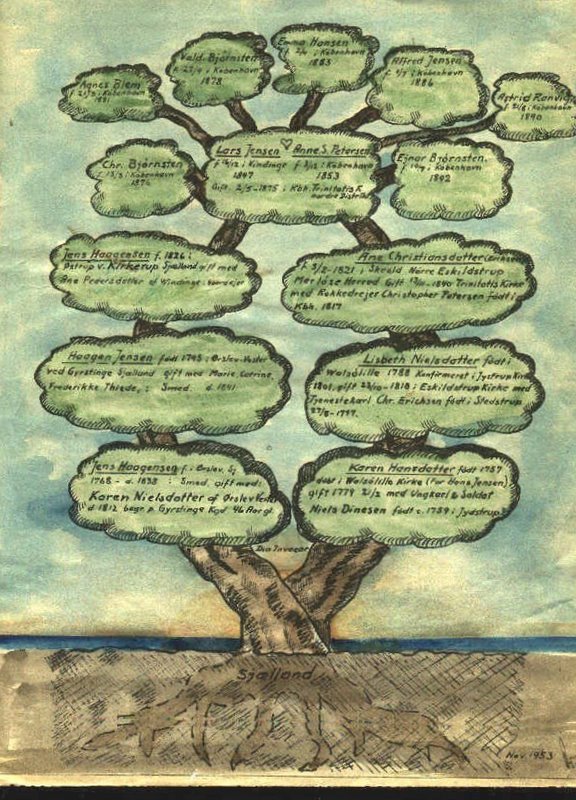 Emma Hansen
f. 2/4 i København
1883
Vald. Bjørnsten
f. 23/9 i København
1878
Alfred Jensen
f. 4/7 i København
1886
Agnes Blem
f. 21/3 i København
1881
Astrid
f. 21/8 i København
1890
Lars Jensen Anne S. Petersen
f. 16/12 i Kindinge f. 3/12 i København
1847 1853
Gift 2/5-1875 i Kbh. Trinitatis K
nordre Distrikt
Chr. Bjørnsten
f. 13/3 i København
1876
Ejnar Bjørnsten.
f. 19/4 i København
1892
Jens Haagensen f. 1826 i
Østrup v. Kirkerup Sjælland gift med
Ane Pedersdatter af Vindinge
Ane Christiansdatter
f. 5/2-1821 i Skuld Nørre Eskildstrup
Merløse Herred Gift 1840 Trinitatis Kirke
med Rokkedrejer Christopher Petersen født i
Kbh. 1817
Haagen Jensen født 1793 i Ørslev-Vester
ved Gyrstinge Sjælland gift med Marie Catrine
Frederikke Thiede, : Smed. d. 1841
Lisbeth Nielsdatter født i
Walsølille 1788 Konfirmeret i Jystrup Kirke
1801, gift 23/10-1818 i Eskildstrup Kirke med
Tjenestekarl Chr. Erichsen født i Stedstrup
27/8-1797.
Jens Haagensen f. i Ørslev, Sj
1768 - d. 1838 : Smed, gift med:
Karen Nielsdatter af Ørslev Vester
d 1812 begr. p. Gyrstinge Kgd 46 Aar gl.
Karen Hansdatter født 1757
døbt i Walsølille Kirke (Far Hans Jensen)
gift 1779 21/2 med Ungkarl & Soldat
Niels Dinesen født c. 1759 i Jydstrup
Sjælland
Nov. 1953